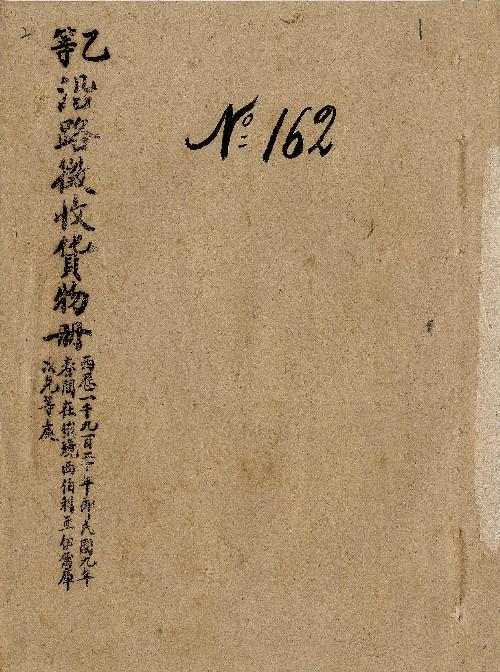 乙等沿路徵收貨物冊
西歷一千九百二十年即民國九年
春間在俄境西伯利亞伊爾庫
次克等處
No 162